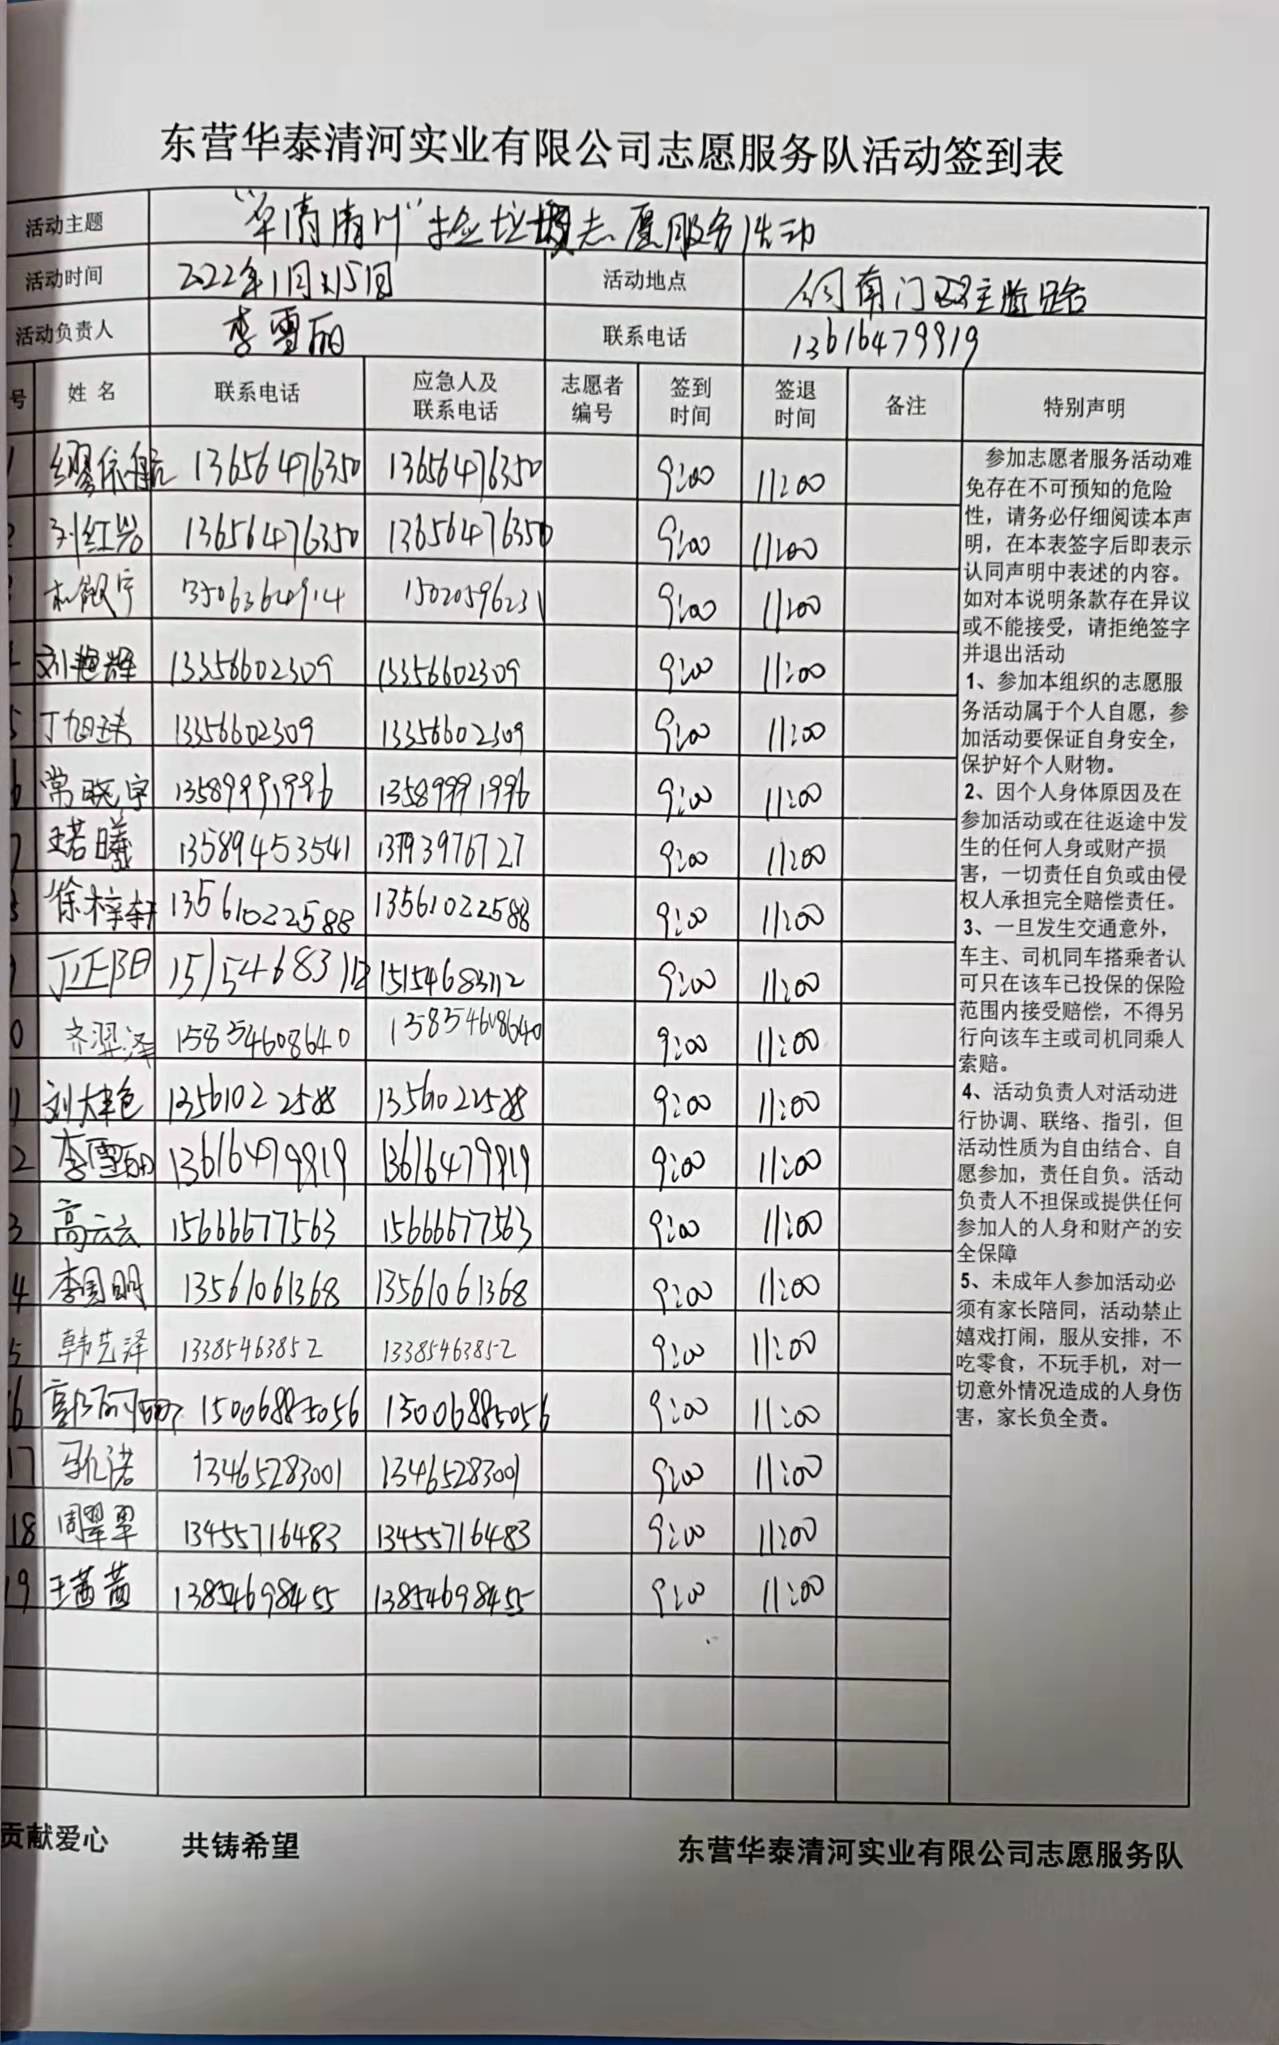 东营华泰清河实业有限公司志愿服务队活动签到表
活动主题 捡垃圾志愿服务活动
活动时间 2022年1月15日 活动地点 南门
活动负责人 李雪丽 联系电话 13616479919
号 姓名 联系电话 应急人及联系电话 志愿者编号 签到时间 签退时间 备注 特别声明
1 缪依航 13656476350 13656476350 9:00 11:00
2 刘红岩 13656476350 13656476350 9:00 11:00
15020596231 9:00 11:00
刘艳辉 13356602309 13356602309 9:00 11:00
5 13356602309 13356602309 9:00 11:00
6 常晓宇 13589991996 13589991996 9:00 11:00
7 王若曦 13589453541 13793976727 9:00 11:00
徐梓轩 13561022588 13561022588 9:00 11:00
丁正阳 15154683112 15154683112 9:00 11:00
0 齐羿泽 15854608640 15854608640 9:00 11:00
11 13561022588 13561022588 9:00 11:00
2 李雪丽 13616479919 13616479919 9:00 11:00
3 高云云 15666677563 15666677563 9:00 11:00
4 李国明 13561061368 13561061368 9:00 11:00
5 韩艺泽 13385463852 13385463852 9:00 11:00
6 15006885056 15006885056 9:00 11:00
17 13465283001 13465283001 9:00 11:00
18 周翠翠 13455716483 13455716483 9:00 11:00
19 王茜茜 13854698455 13854698455 9:00 11:00
参加志愿者服务活动难
免存在不可预知的危险
性，请务必仔细阅读本声
明，在本表签字后即表示
认同声明中表述的内容。
如对本说明条款存在异议
或不能接受，请拒绝签字
并退出活动
1、参加本组织的志愿服
务活动属于个人自愿，参
加活动要保证自身安全，
保护好个人财物。
2、因个人身体原因及在
参加活动或在往返途中发
生的任何人身或财产损
害，一切责任自负或由侵
权人承担完全赔偿责任。
3、一旦发生交通意外，
车主、司机同车搭乘者认
可只在该车已投保的保险
范围内接受赔偿，不得另
行向该车主或司机同乘人
索赔。
4、活动负责人对活动进
行协调、联络、指引，但
活动性质为自由结合、自
愿参加，责任自负。活动
负责人不担保或提供任何
参加人的人身和财产的安
全保障
5、未成年人参加活动必
须有家长陪同，活动禁止
嬉戏打闹，服从安排，不
吃零食，不玩手机，对一
切意外情况造成的人身伤
害，家长负全责。
贡献爱心 共铸希望 东营华泰清河实业有限公司志愿服务队